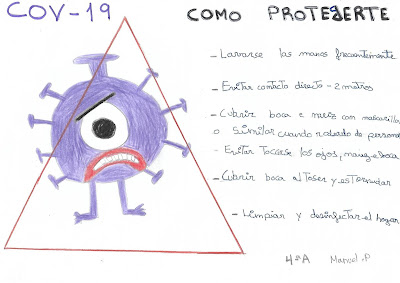 COV-19
COMO PROTEGERTE
- Lavarse las manos frecuentemente
- Evitar contacto directo - 2 metros
- Cubrir boca e nariz con mascarilla
o similar cuando rodeado de personas
- Evitar tocarse los ojos, nariz e boca
- Cubrir boca al toser y estornudar
- Limpiar y desinfectar el hogar
4ºA Manuel.P